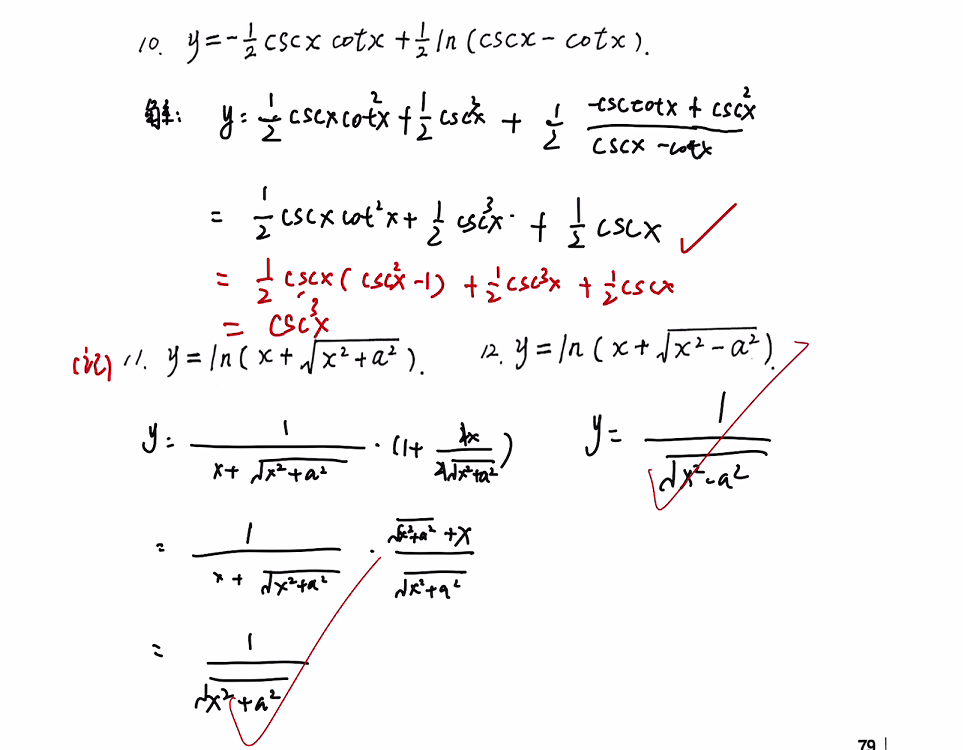 10. y = -1/2 cscx cotx + 1/2 ln(cscx - cotx).
解: y = 1/2 cscx cot²x + 1/2 csc³x + 1/2 (-csccotx + csc²x)/(cscx - cotx)
= 1/2 cscx cot²x + 1/2 csc³x · + 1/2 cscx ✓
= 1/2 cscx(csc²x - 1) + 1/2 csc³x + 1/2 cscx
= csc³x
(记) 11. y = ln(x + √(x² + a²)). 12. y = ln(x + √(x² - a²)).
y = 1/(x + √(x² + a²)) · (1 + 2x/(2√(x² + a²))) y = 1/√(x² - a²)
= 1/(x + √(x² + a²)) · (√(x² + a²) + x)/√(x² + a²)
= 1/√(x² + a²)
79